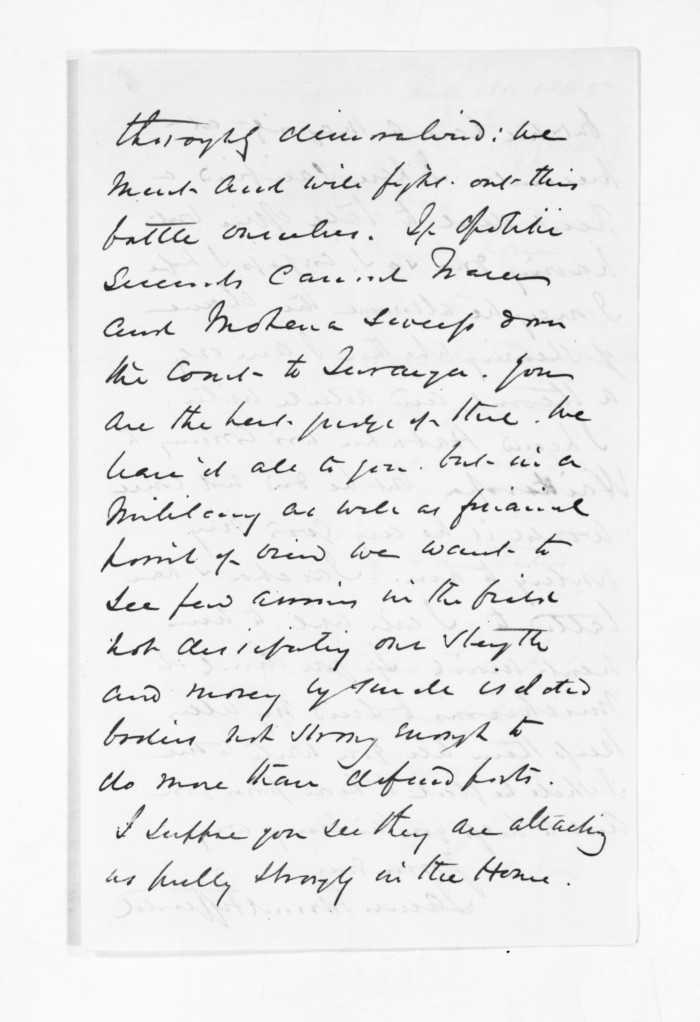 thoroughly demoralized: we
must and will fight out this
battle ourselves. If Opotiki
succeeds cannot Fraser
and Mohena sweep down
the Coast to Turanga. You
are the best judge of this. We
leave it all to you. but in a
military as well as financial
point of view we want to
see few armies in the field
not dissipating our strength
and money by small isolated
bodies not strong enough to
do more than defend posts.
I suppose you see they are attacking
us pretty strongly in the House.